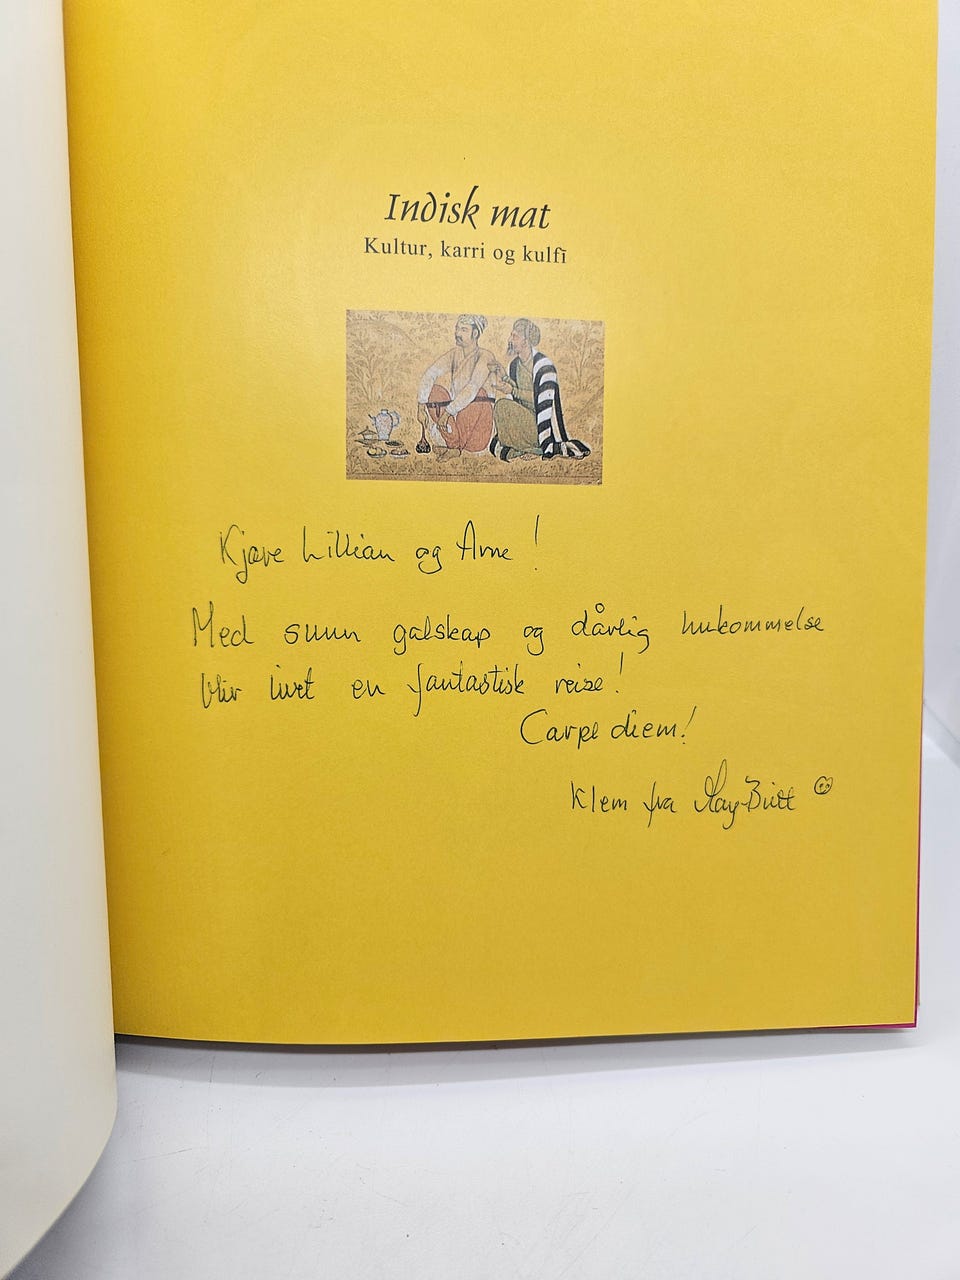 Indisk mat
Kultur, karri og kulfi
Kjære Lillian og Arne!
Med sunn galskap og dårlig hukommelse
blir livet en fantastisk reise!
Carpe diem!
Klem fra May-Britt